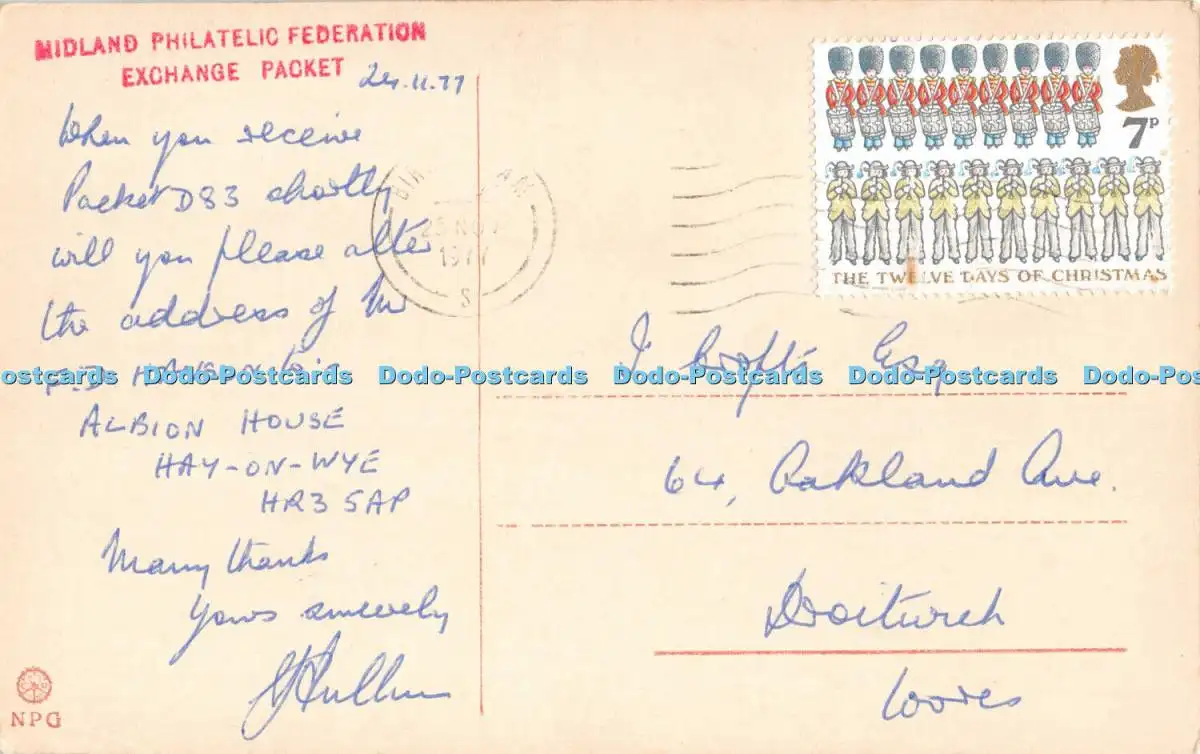 MIDLAND PHILATELIC FEDERATION
EXCHANGE PACKET
24.11.77
When you receive
Packet D83 shortly
will you please alter
the address of Mr
ALBION HOUSE
HAY-ON-WYE
HR3 5AP
Many thanks
Yours sincerely
NPG
NOV
1977
S
7P
THE TWELVE DAYS OF CHRISTMAS
Esq
64, Oakland Ave.
Droitwich
Worcs
Dodo-Postcards Dodo-Postcards Dodo-Postcards